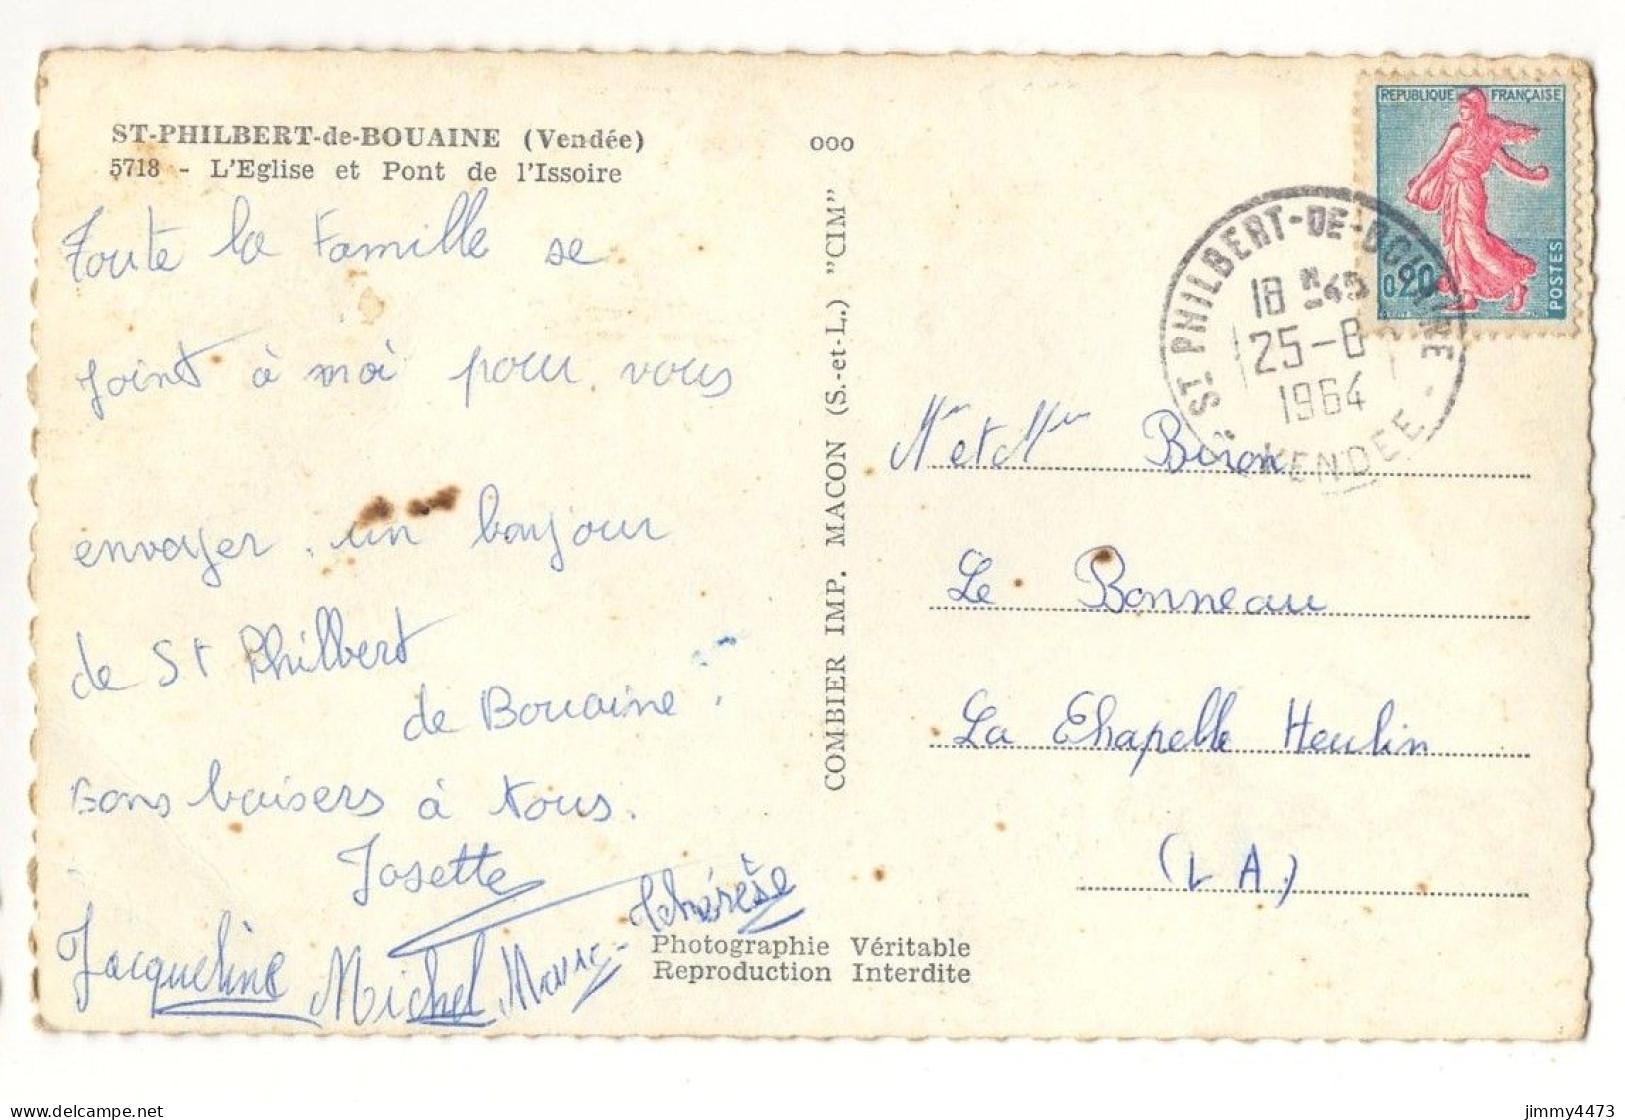 ST-PHILBERT-de-BOUAINE (Vendée)
5718 - L'Eglise et Pont de l'Issoire
ooo
Toute la Famille se
joint à moi pour vous
envoyer un bonjour
de St Philbert
de Bouaine.
Bons baisers à tous.
Josette
Jacqueline Michel Marie-Thérèse
COMBIER IMP. MACON (S.-et-L.) "CIM"
Photographie Véritable
Reproduction Interdite
REPUBLIQUE FRANÇAISE
0,20
POSTES
ST PHILBERT-DE-BOUAINE
18 H 45
25-8
1964
VENDEE
Mr et Mme Biron
Le Bonneau
La Chapelle Heulin
(L A.)
delcampe.net
jimmy4473